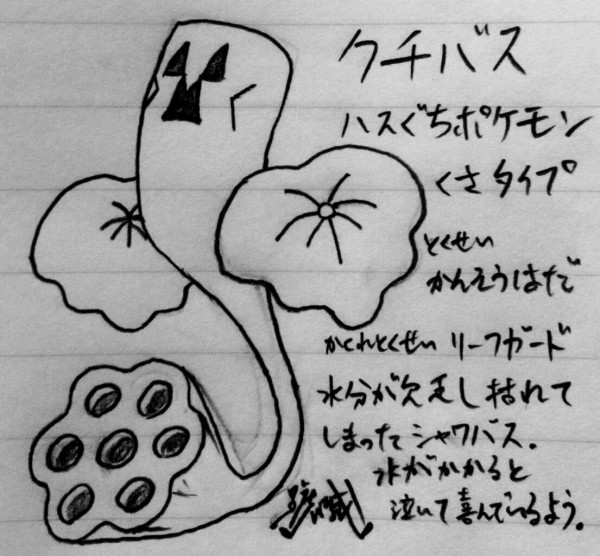 クチバス
ハスぐちポケモン
くさタイプ
とくせい
かんそうはだ
かくれとくせい リーフガード
水分が欠乏し枯れて
しまったシャワバス。
水がかかると
泣いて喜んでいるよう。